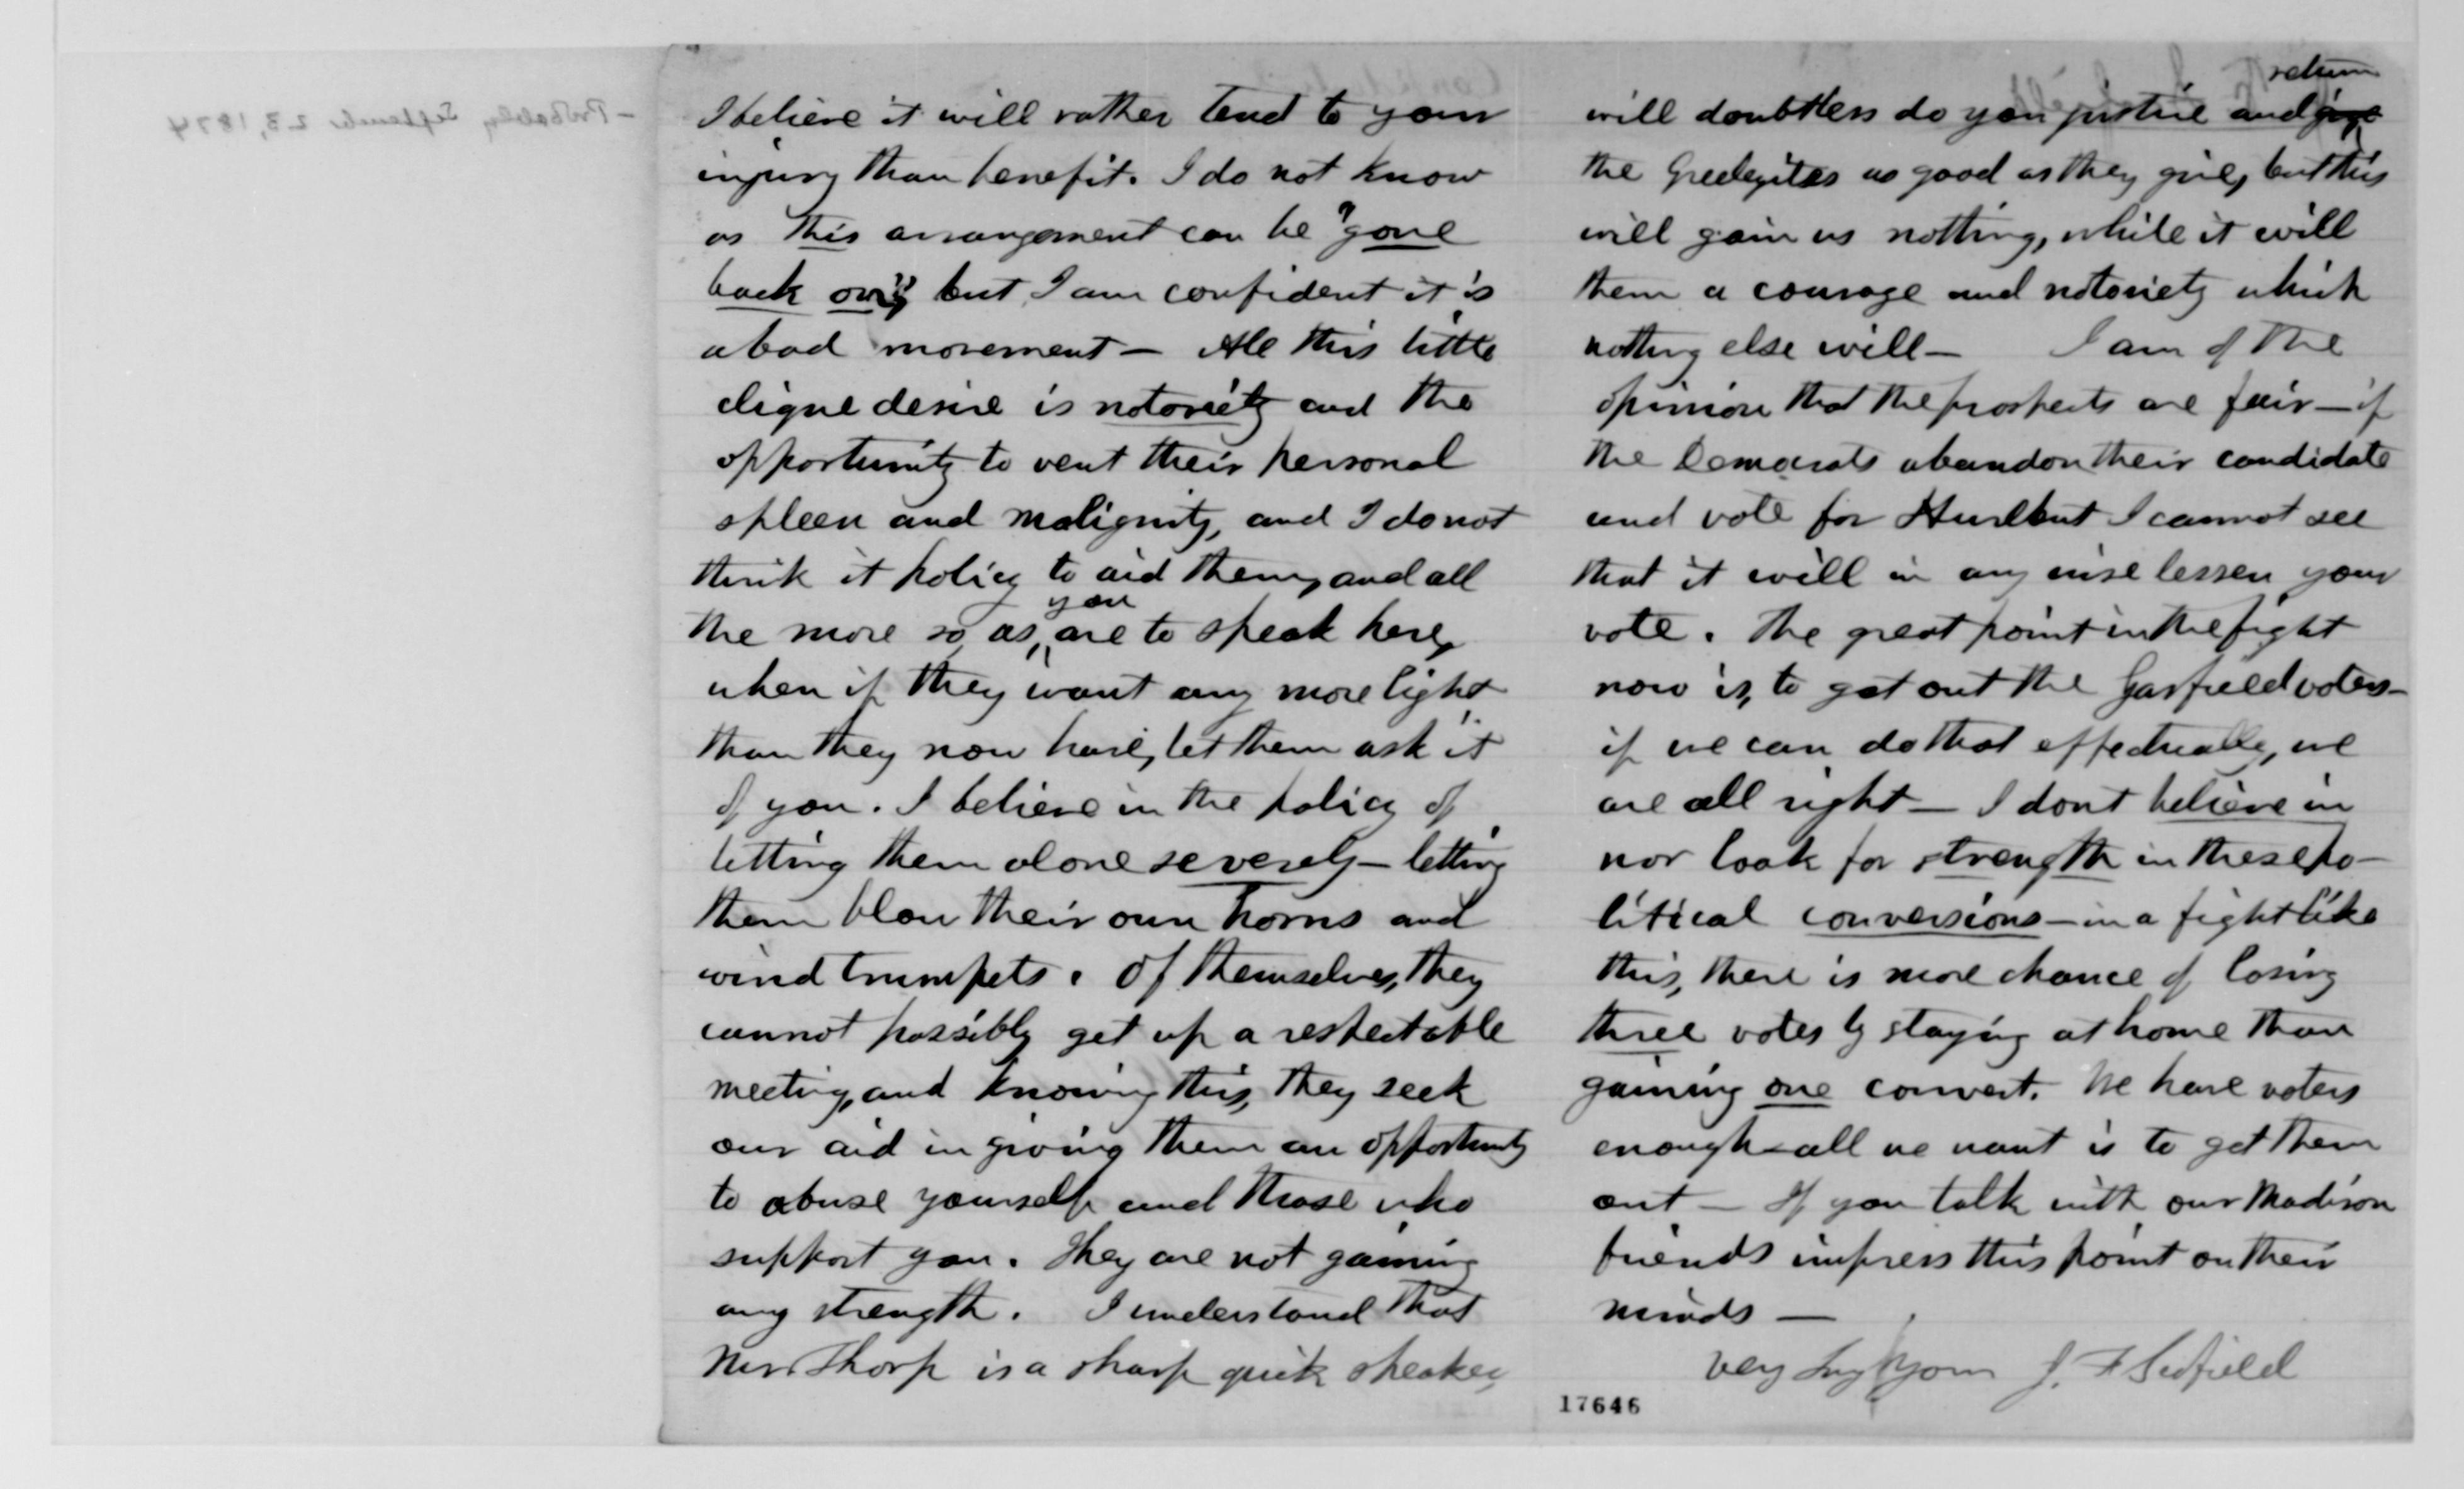 I believe it will rather tend to your
injury than benefit. I do not know
as this arrangement can be "gone
back on", but I am confident it is
a bad movement — All this little
clique desire is notoriety and the
opportunity to vent their personal
spleen and malignity, and I do not
think it policy to aid them, and all
the more so, as you are to speak here,
when if they want any more light
than they now have, let them ask it
of you. I believe in the policy of
letting them alone severely — letting
them blow their own horns and
wind trumpets. Of themselves, they
cannot possibly get up a respectable
meeting, and knowing this, they seek
our aid in giving them an opportunity
to abuse yourself and those who
support you. They are not gaining
any strength. I understand that
Thorp is a sharp quick speaker,
return
will doubtless do you justice and give
the Greeleyites as good as they give, but this
will gain us nothing, while it will
them a courage and notoriety which
nothing else will — I am of the
opinion that the prospects are fair — if
the Democrats abandon their candidate
and vote for Hurlbut I cannot see
that it will in any wise lessen your
vote. The great point in the fight
now is, to get out the Garfield voters —
if we can do that effectually, we
are all right — I dont believe in
nor look for strength in these po-
litical conversions — in a fight like
this, there is more chance of losing
three votes by staying at home than
gaining one convert. We have voters
enough — all we want is to get them
out — If you talk with our Madison
friends impress this point on their
minds —
Very Yours J. F Scofield
17646
— Probably September 23, 1874